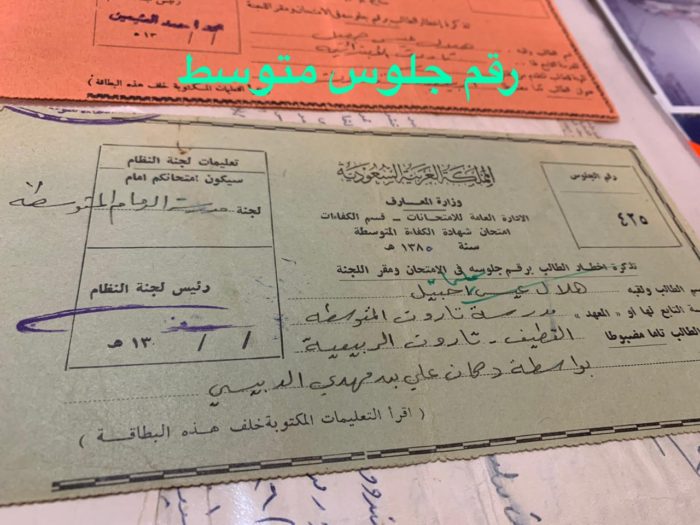 رئيس لجنة
محمد احمد
/ / ١٣ هـ
تذكرة إخطار الطالب برقم جلوسه في الامتحان ومقر اللجنة
التعليمات المكتوبة خلف هذه البطاقة )
رقم جلوس متوسط
المملكة العربية السعودية
وزارة المعارف
الادارة العامة للامتحانات - قسم الكفاءات
امتحان شهادة الكفاءة المتوسطة
سنة ١٣٨٥ هـ
رقم الجلوس
٤٢٥
تذكرة إخطار الطالب برقم جلوسه في الإمتحان ومقر اللجنة
الطالب ولقبه هلال عيسى احبيل
التابع لها او « العهد » مدرسة تاروت المتوسطة
الطالب تاما مضبوطا القطيف - تاروت الربيعية
بواسطة دكان علي بن مهدي الدبيسي
( اقرأ التعليمات المكتوبة خلف هذه البطاقة )
تعليمات لجنة النظام
سيكون امتحانكم امام
لجنة مدرسة الدمام المتوسطة
رئيس لجنة النظام
/ / ١٣ هـ